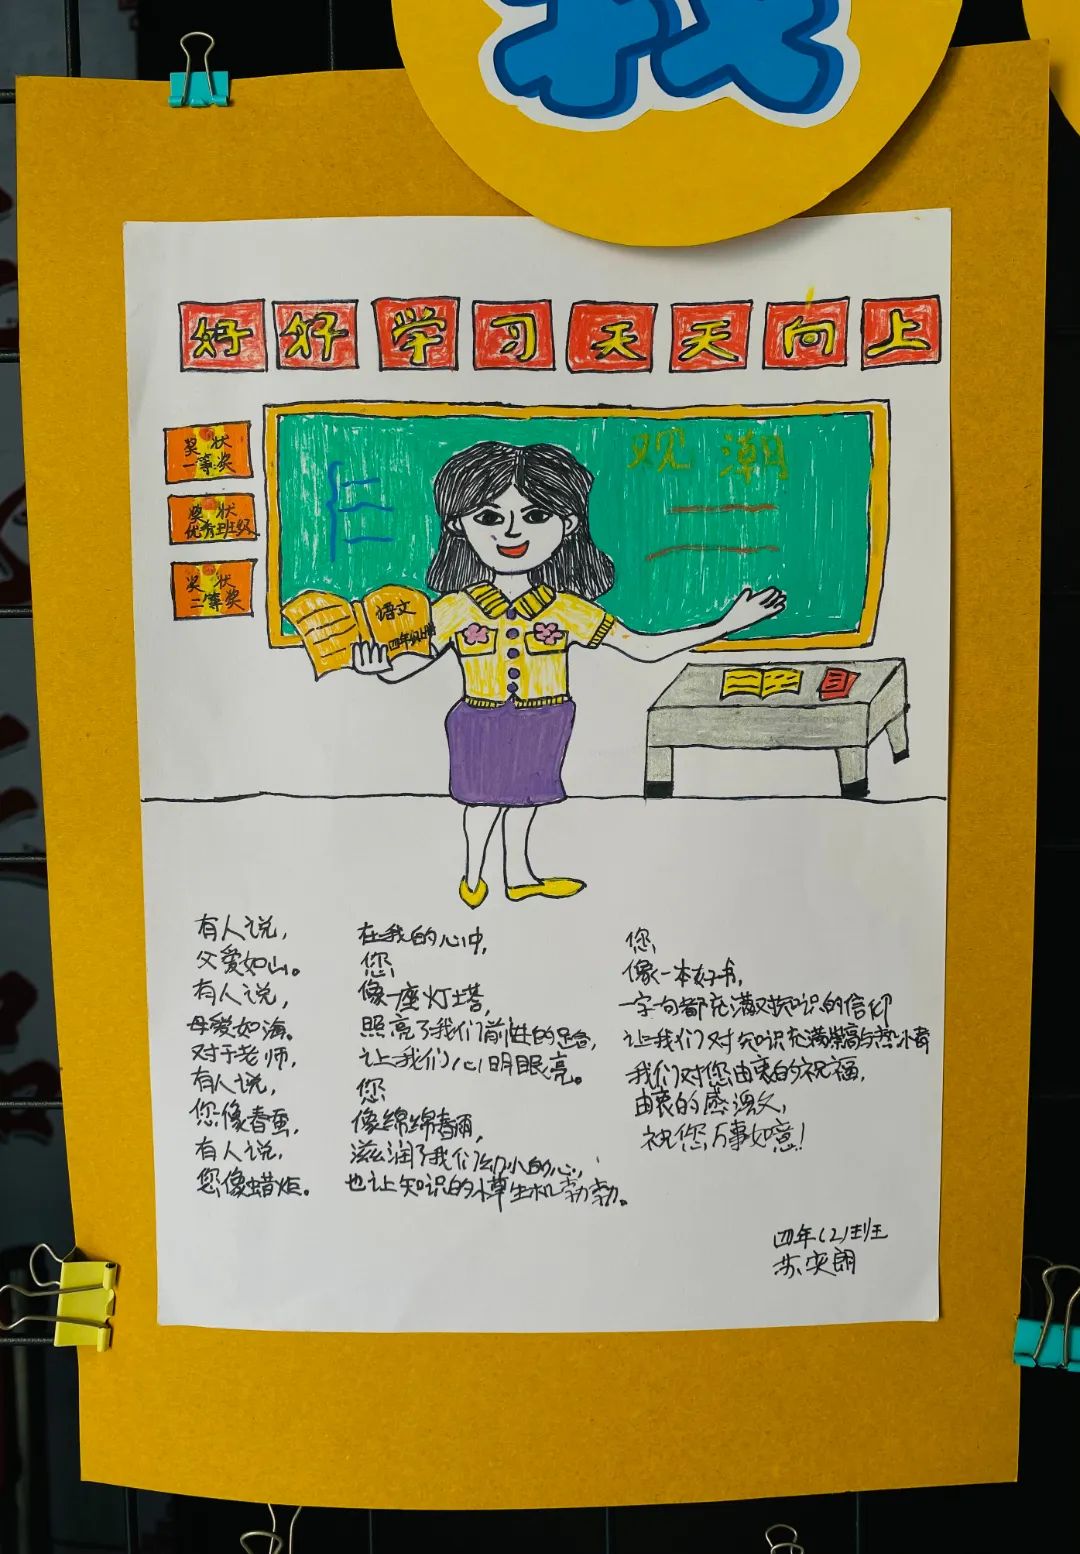 我
好好学习天天向上
奖状
一等奖
奖状
优秀班级
奖状
二等奖
观潮
语文
四年级上册
有人说，
父爱如山。
有人说，
母爱如海。
对于老师，
有人说，
您像春蚕，
有人说，
您像蜡炬。
在我的心中，
您
像一座灯塔，
照亮了我们前进的路，
让我们心明眼亮。
您
像绵绵春雨，
滋润了我们幼小的心，
也让知识的小草生机勃勃。
您
像一本好书，
一字一句都充满对知识的信仰
让我们对知识充满崇高与热情
我们对您由衷的祝福，
由衷的感激，
祝您万事如意！
四年(2)班
苏奕朗